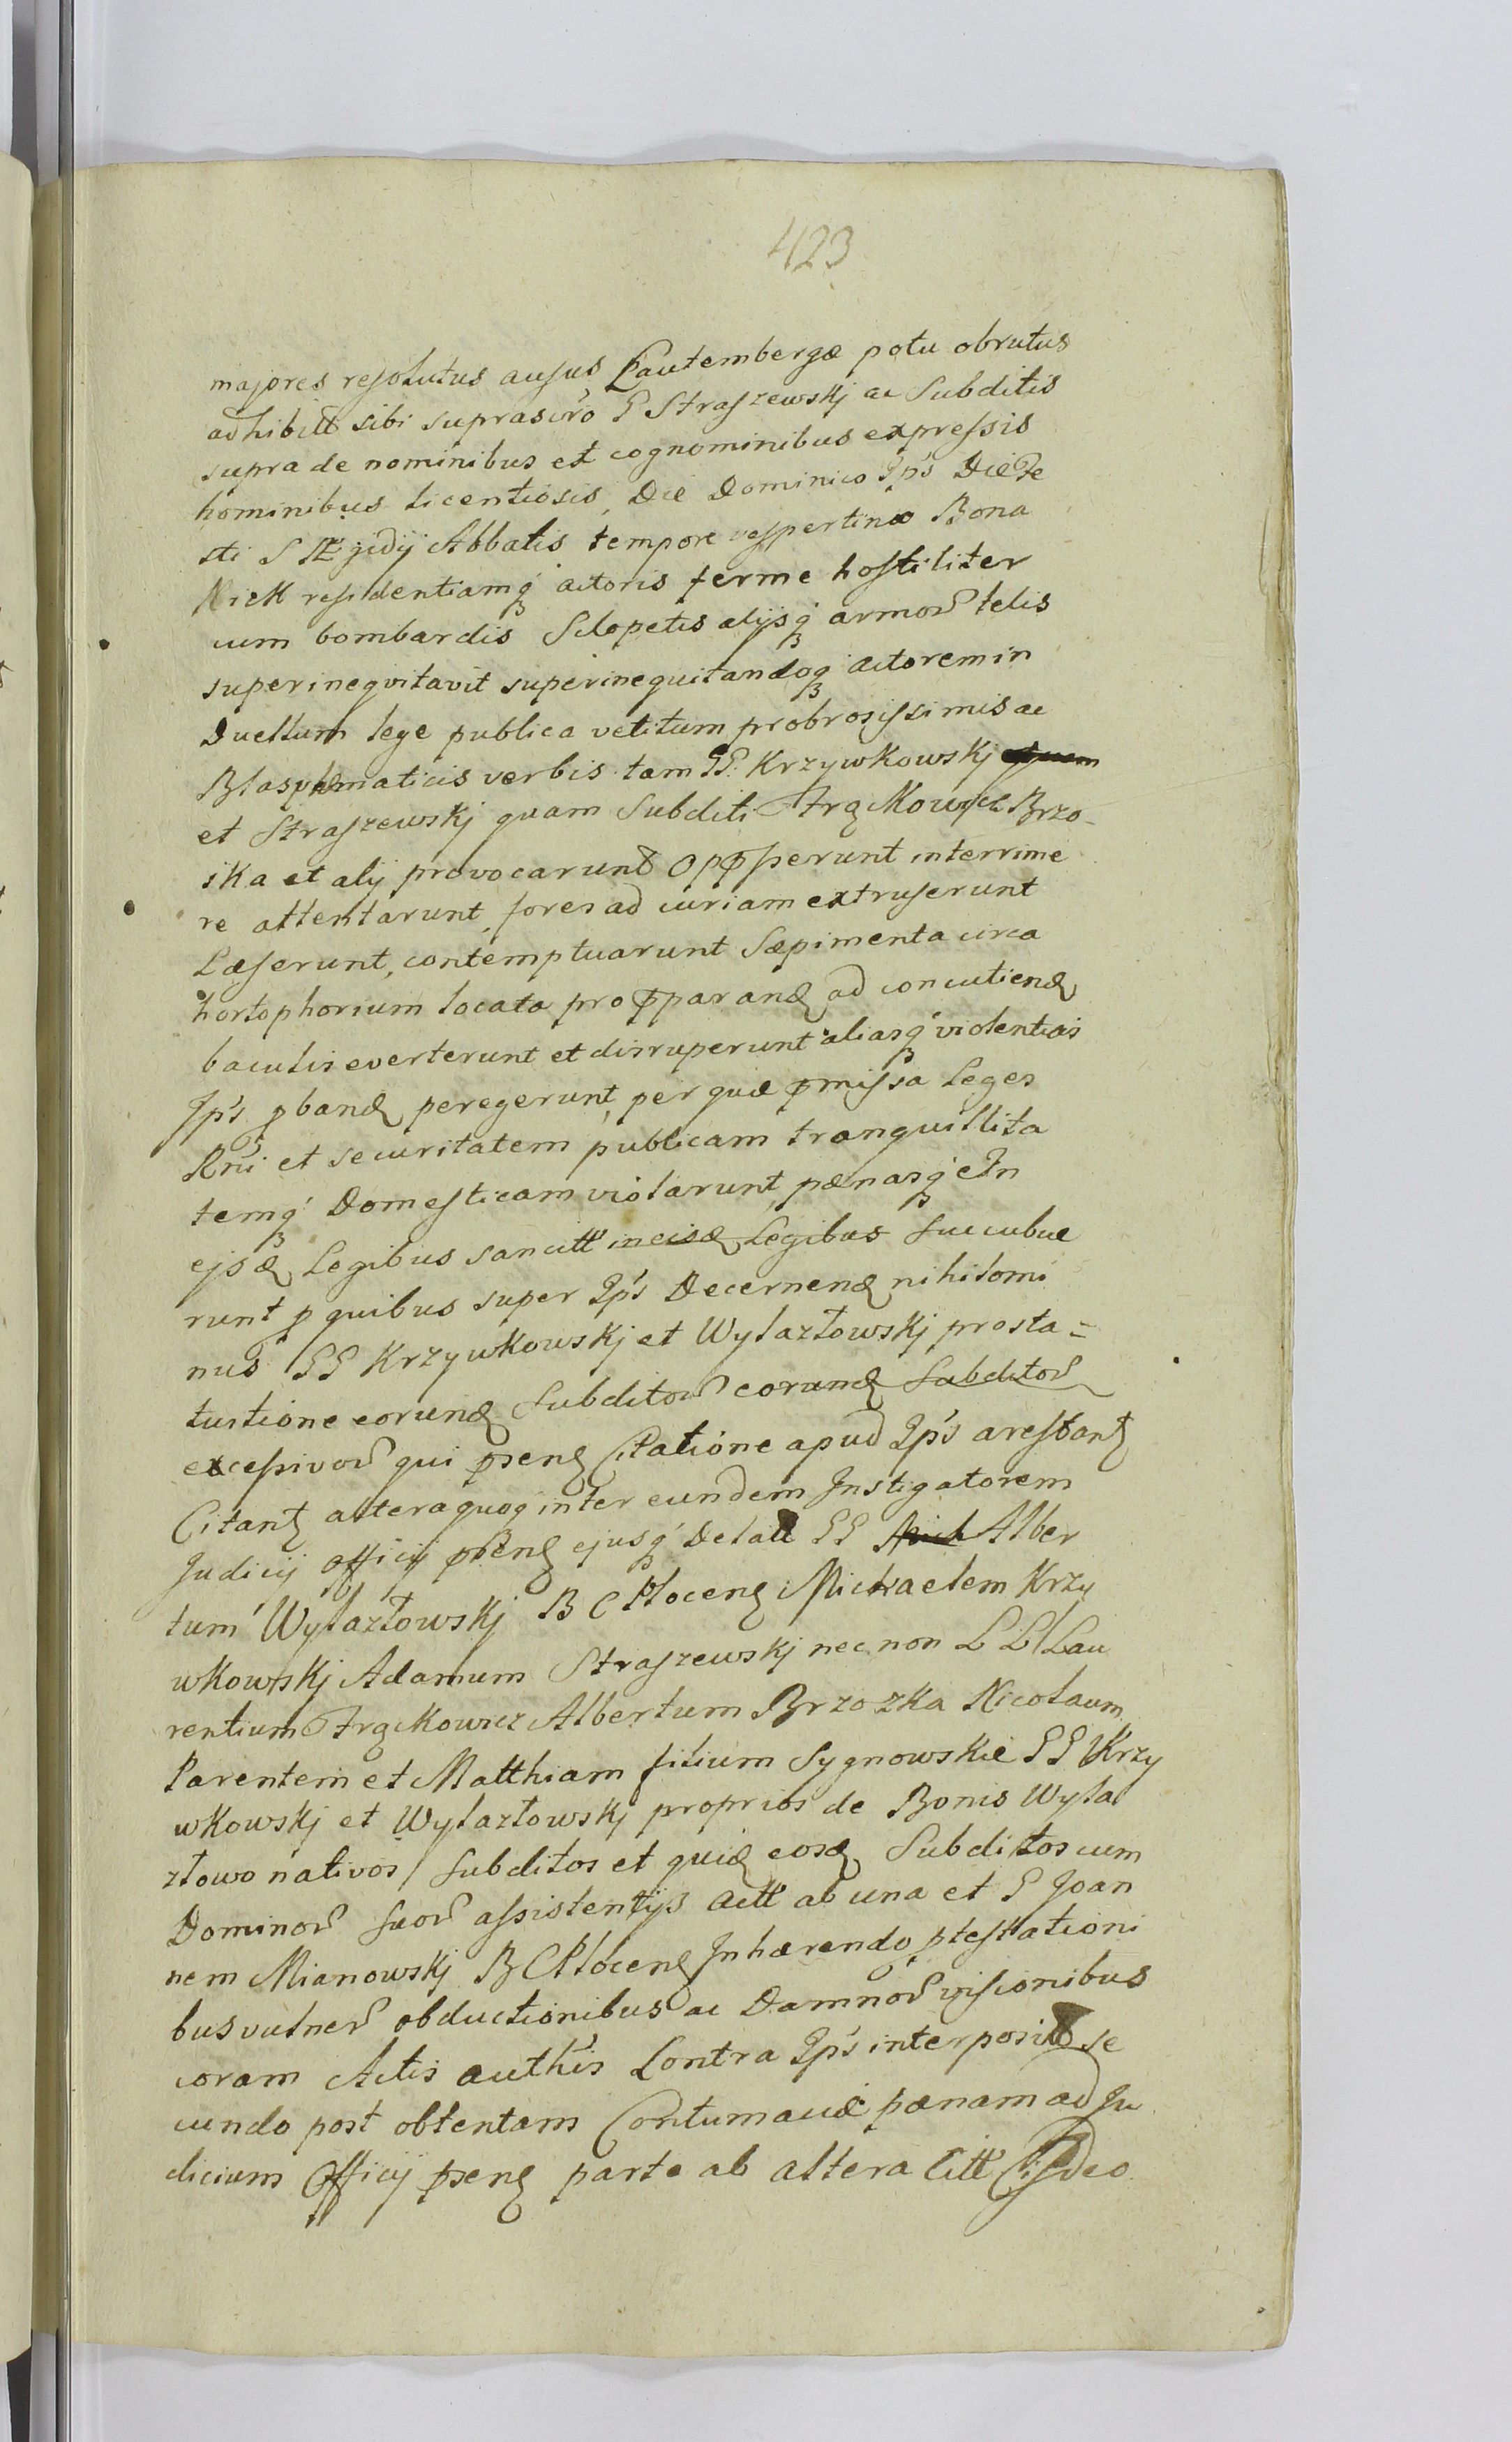 423
majores resolutus ausus Lautembergæ potu obrutus
adhibitt sibi suprascr̃o G Straszewskj ac Subditis
supra de nominibus et cognominibus expressis
hominibus licentiosis, Die Dominico Ip̃s Die Fe
sti S Ægidij Abbatis tempore vespertino Bona
Nick residentiamq́ꝫ actoris ferme hostiliter
cum bombardis Sclopetis alijsq́ꝫ armor̃ telis
superineqvitavit superinequitandoq́ꝫ actorem in
Duellum lege publica vetitum probrosissimis ac
Blasphematicis verbis tam GG. Krzywkowskj quem
et Straszewskj quam Subditi Frąckowicz Brzo-
ska et alij provocarunt opp̃sserunt interrime
re attentarunt, fores ad curiam extruserunt
Læserunt, contemptuarunt Sæpimenta circa
hortophorium locata pro p̃parand ad concutiend
baculis everterunt et disruperunt aliasq́ꝫ violentias
Ip̃s p̱band peregerunt, per quæ p̃missa Leges
Rñi et securitatem publicam tranquillita
temq́ꝫ Domesticam violarunt, pænasq́ꝫ In
ejsd Legibus sancitt incisd Legibus succubue
runt p̱ quibus super Ip̃s Decernend nihilomi
nus GG Krzywkowskj et Wylazłowskj prosta=
tutione eorund Subditor̃ eorund Subditor̃
excessivor̃ qui p̃senꝫ Citatione apud Ip̃s arestantꝫ
Citantꝫ altera quoq inter eundem Instigatorem
Judicij officij p̃senꝫ ejusq́ꝫ Delatt GG Mich Alber
tum Wylazłowskj B C Płocenꝫ Michaelem Krzy
wkowskj Adamum Straszewskj nec non L L Lau
rentium Frąckowicz Albertum Brzozka Nicolaum
Parentem et Matthiam filium Sygnowskie GG Krzy
wkowskj et Wylazłowskj proprios de Bonis Wyla
złowo nativos / Subditos et quid eosd Subditos cum
Dominor̃ suor̃ assistentijs Actt ab una et G Joan
nem Mianowskj B C Płocenꝫ Inhærendo p̱testationi
bus vulner̃ obductionibus ac Damnor̃ visionibus
coram Actis auth̃is Contra Ip̃s interpositt se
cundo post obtentam Contumaciæ pænam ad Ju
dicium Officij p̃senꝫ parte ab altera Citt